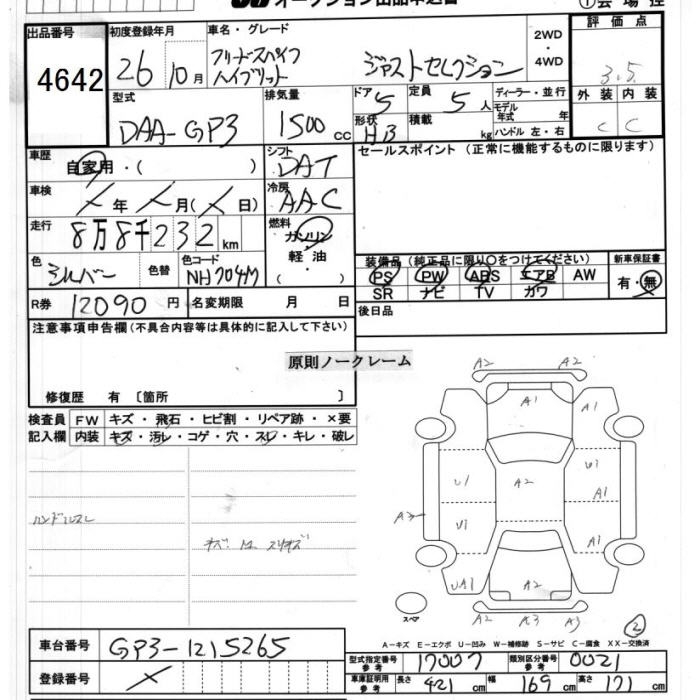 オークション出品申込書
①会場控
出品番号
4642
初度登録年月
26 10月
車名・グレード
フリードスパイク
ハイブリット
ジャストセレクション
2WD
・
4WD
評価点
3.5
外装 内装
C C
型式
DAA-GP3
排気量
1500cc
ドア 5
形状 HB
定員 5人
積載 kg
ディーラー・並行
モデル
年式 年
ハンドル 左・右
車歴
自家用・( )
シフト
DAT
セールスポイント(正常に機能するものに限ります)
車検
年 月( 日)
冷房
AAC
走行
8万8千232km
燃料
ガソリン
軽油
( )
色
シルバー
色替
色コード
NH704M
装備品(純正品に限り○をつけてください)
PS PW ABS エアB AW
SR ナビ TV カワ
新車保証書
有・無
R券 12090円
名変期限 月 日
後日品
注意事項申告欄(不具合内容等は具体的に記入して下さい)
原則ノークレーム
修復歴 有〔箇所 〕
検査員
記入欄
FW キズ・飛石・ヒビ割・リペア跡・×要
内装 キズ・汚レ・コゲ・穴・スレ・キレ・破レ
ハンドルスレ
A2 A2
A1 A1
U1 A2 U1
A1
A3 U1
A1
UA1 A2
A2 A3 A3
スペア
②
A-キズ E-エクボ U-凹み W-補修跡 S-サビ C-腐食 XX-交換済
車台番号
GP3-1215265
登録番号
型式指定番号 参考 17007
類別区分番号 参考 0021
車庫証明用 参考 長さ 421cm 幅 169cm 高さ 171cm